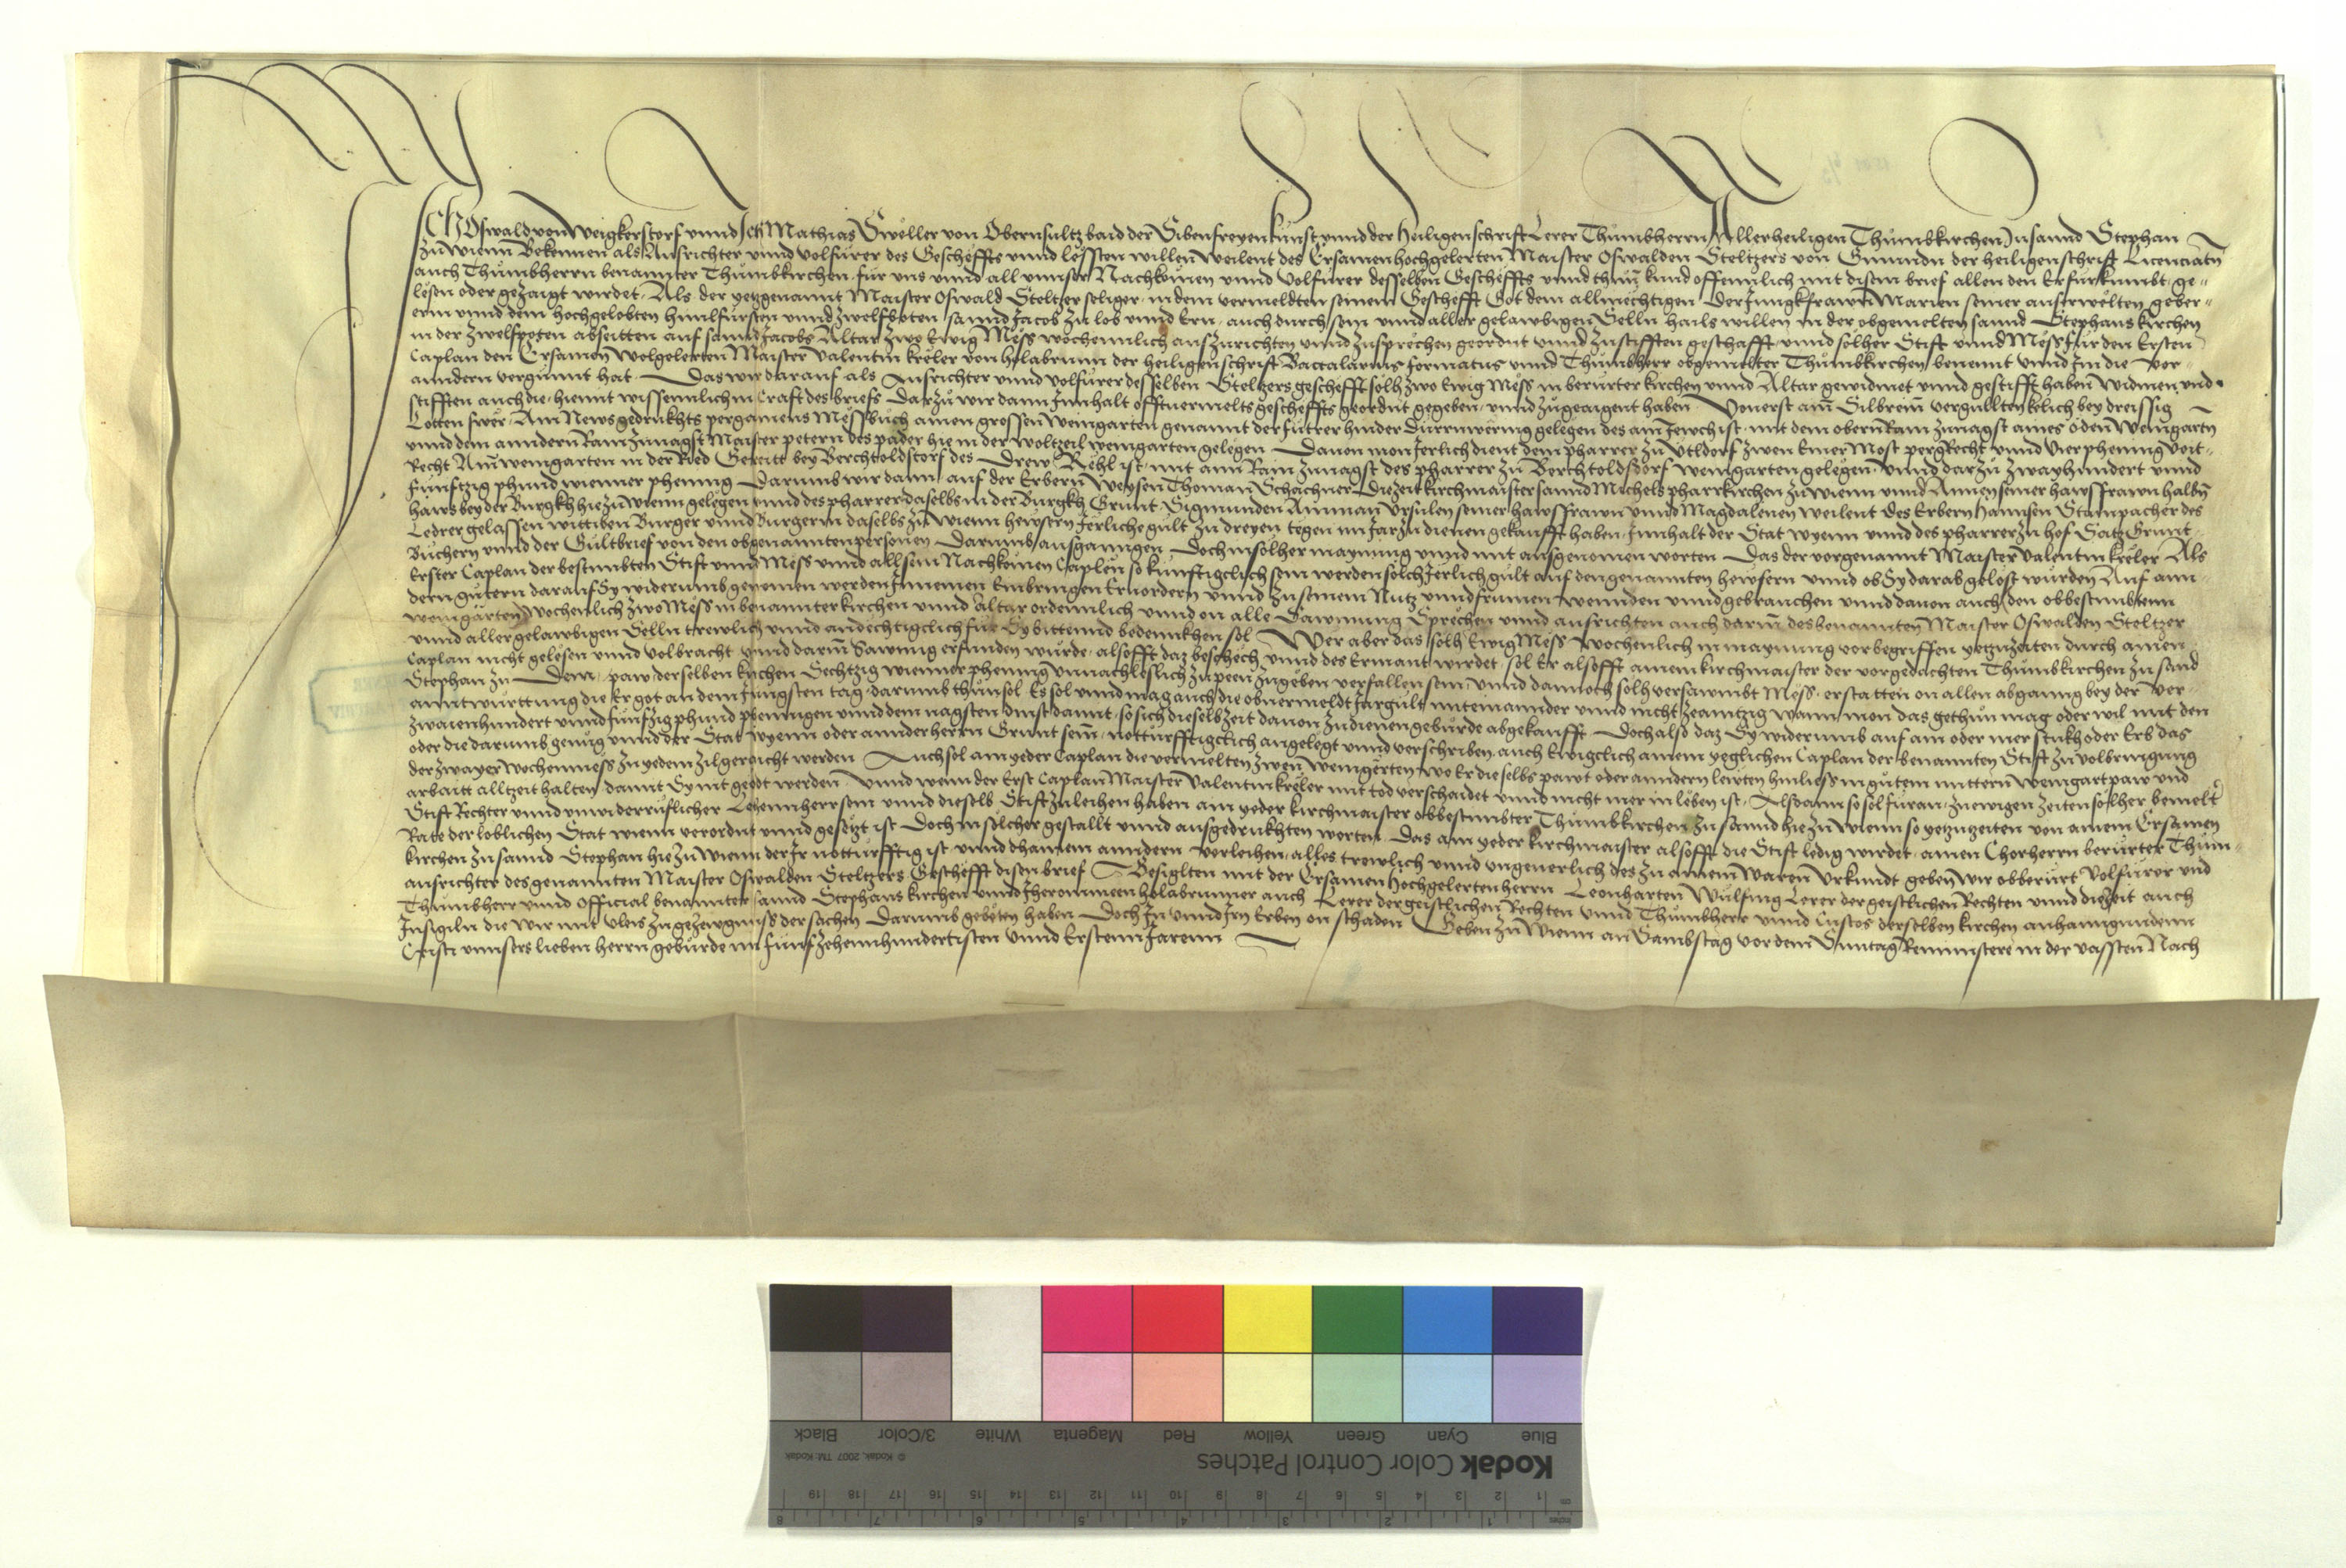 ICh Oswald von Weigkerstorf vnnd Ich Mathias Gweller von Obernsultz baid der Sibenfreyenkunst vnnd der heiligenschrift Lerer Thumbherrn Allerheiligen Thumbkirchen Zu sannd Stephan
zu Wienn Bekennen als Ausrichter vnnd Volfurer des Gescheffts vnnd lessten willen weilent des Ersamen hochgelerten Maister Oswalden Steltzers von Gmundn der heiligenschrift Licenciatn
auch Thumbherrn benannter Thumbkirchen für vns vnnd all vnnser Nachkomen vnnd Volfurer desselben Gescheffts vnnd thun kund offennlich mit disem brief allen den Er fürkumbt ge-
lesen oder getzaigt wirdet Als der yetzgenannt Maister Oswald Steltzer seliger in dem vermeldten seinem Geschefft Got dem allmechtigen Der Jungkfrawn Marien seiner auserwelten geber-
erin vnnd dem hochgelobten himlfürsten vnnd zwelfboten sannd Jacob zu lob vnnd Ern auch durch sein vnnd aller gelawbigen Selln hails willen in der obgemelten sannd Stephanskirchen
in der zwelfpoten abseitten auf sannd Jacobs Altar zwo Ewig Mess wochennlich auszurichten vnnd zusprechen geordnt vnnd zustifften geschafft vnnd solher Stift vnnd Mess für den Ersten
Caplan den Ersamen Wolgelerten Maister Valentin kreler von holabrunn der heiligenschrift Baccalarius formatus vnnd Thumbherr obgemelter Thumbkirchen benennt vnnd Im die vor
anndern vergunnt hat Das wir darauf als Ausrichter vnnd volfurer desselben Steltzers geschefft solh zwo Ewig Mess in berurter kirchen vnnd Altar gewidmet vnnd gestifft haben widmen vnd
stifften auch die hiemit wissennlich in Craft des briefs Darzu wir dann Innhalt offtuermelts gescheffts geordnt gegeben vnnd zugeaigent haben Von erst ain Silbrein vergullten kelich bey dreissig
Lotten swer Ain News gedrukhts pergamens Messbuch ainen grossen Weingarten genannt der fütrer hinder Durrnwering gelegen des ain Jewch ist mit dem obern Rain zunagst aines oden Weingartn
vnnd dem anndern Rain zunagst Maister petern des pader hie in der Woltzeil weingarten gelegen Dauon mon Jerlich dient dem pharrer zu Vtldorf zwen Emer Most pergRecht vnnd vier phening voit-
Recht Ain weingarten in der Ried Gereitt bey Berchtoldstorf des Drew Rehl ist mit ainn Rain zunagst des pharrer zu Berchtoldsdorf weingarten gelegen vnnd darzu zwayhundert vnnd
funftzig phund wienner phening Darumb wir dann auf der Erbern Weysen Thoman Schachner Diezeit kirchmaister sannd Michels pharrkirchen zu Wienn vnnd Annen seiner hawsfrawn halbn
haws bey der Burgkh hie zu Wienn gelegen vnnd des pharrer daselbs in der Burgkh Grunt Sigmunden Amman Vrsulen seiner hawsfrawn vnnd Magdalenen weilent des Erbern hannsen Stampacher des
Ledrer gelassen wittiben Burger vnnd Burgerin daselbs zu Wienn hewsern Jerliche gult zu dreyen tegen im Jar zu dienen gekaufft haben Innhalt der Stat Wienn vnnd des pharrer zu hof Satz Grunt
Buchern vnnd der Gultbrief von den obgenannten personen Darumb ausganngen Doch in solher maynung vnnd mit ausgenomen worten Das der vorgenannt Maister Valentin kreler Als
Erster Caplan der bestimbten Stift vnnd Mess vnnd all sein Nachkomen Caplen so kunftigclich sein werden solch Jerlich gult auf den genannten hewsern vnnd ob Sy darab gelost wurden Auf ann-
dern gutern darauf Sy widerumb genomen werden Innemen Einbringen Eruordern vnnd zu seinem Nutz vnnd frumen wennden vnnd gebrauchen vnnd dauon auch den obbestimbtenn
weingarten wochenlich zwo Mess in benannter kirchen vnnd Altar ordennlich vnnd on alle Sawmung Sprechen vnnd ausrichten auch darin des benannten Maister Oswalden Steltzer
vnnd aller gelawbigen Selln trewlich vnnd andechtigclich für Sy bittennd bedennkhen sol Wer aber das solh Ewig Mess wochenlich in maynung vorbegriffen yetzuzeiten durch ainen
Caplan nicht gelesen vnnd volbracht vnnd darin Sawmig erfunden wurde alsofft daz beschech vnnd des Ermant wirdet sol Er alsofft ainem kirchmaister der vorgedachten Thumbkirchen zu sand
Stephan zu Dem paw derselben kirchen Sechtzig wienner phening vnnachleslich zu peen zugeben verfallen sein vnnd dannoch solh versawmbt Mess erstatten on allen abganng bey der ver-
anntwurttung die Er got an dem Jungsten tag darumb thun sol Es sol vnnd mag auch die obuermeldt Jargult miteinannder vnnd nicht zeaintzig wann mon das gethun mag oder wil mit den
zwaienhundert vnnd funfzig phund phenningen vnnd dem nagsten dinst damit so sich dieselb zeit dauon zudienen geburde abgekaufft Doch also daz Sy widerumb auf ain oder mer stukh oder Erb das
oder die darumb genug vnnd der Stat Wyenn oder annder herrn Grunt sein notturfftigclich angelegt vnnd verschriben auch Ewigclich ainem yeglichen Caplan der benannten Stift zu volbringung
der zwayer wochenmess zu yedem zil geraicht werden Auch sol ain yeder Caplan die vermelten zwen Weingerten wo Er die selbs pawt oder anndern lewten hinliess in gutem mittern Weingartpaw vnd
arbaitt alltzeit halten damit Sy nit geodt werden Vnnd wenn der Erst Caplan Maister Valentin kreler mit tod verschaidet vnnd nicht mer in leben ist Alsdann so sol füran zu ewigen zeiten solher bemelt
Stift Rechter vnnd vnwiderruflicher Lehennherr sein vnnd dieselb Stift zuleihen haben ain yeder kirchmaister obbestimbter Thumbkirchen zu sannd hie zu Wienn so yetzuzeiten von ainem Ersamen
Rate der loblichen Stat wienn verordnt vnnd gesetzt ist Doch in solcher gestallt vnnd ausgedrukhten worten Das ain yeder kirchmaister alsofft die Stift ledig wirdet ainen Chorherrn berurter Thum-
kirchen zu sannd Stephan hie zu Wienn der Ir notturfftig ist vnnd dhainem anndern verleihen alles trewlich vnnd vngeuerlich des zu ainem waren Vrkundt geben wir obberurt Volfurer vnd
ausrichter des genannten Maister Oswalden Steltzers Geschefft disen brief Besiglten mit der Ersamen Hochgelerten herrn Leonharten Wulfing Lerer der geistlichen Rechten vnnd diezeit auch
Thumbherr vnnd Official benannter sannd Stephans kirchen vnnd Jheronimeen holabrunner auch Lerer der geistlichen Rechten vnnd Thumbherr vnnd Custos derselben kirchen anhanngunden
Insigiln die wir mit vleis zu getzewgnuss der sachen Darumb gebeten haben Doch In vnnd Irn Erben on schaden Geben zu Wienn an Sambstag vor dem Sunntag Reminiscere in der vassten Nach
Cristi vnnsers lieben herrn geburde im funfzehennhundertisten vnnd Erstenn Jarenn
Blue Cyan Green Yellow Red Magenta White 3/Color Black
Kodak Color Control Patches
© Kodak, 2007 TM: Kodak
cm 1 2 3 4 5 6 7 8 9 10 11 12 13 14 15 16 17 18 19
inches 1 2 3 4 5 6 7 8